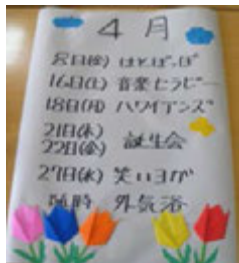 4月
8日(金) はとぽっぽ
16日(土) 音楽セラピー
18日(月) ハワイアンズ
21日(木)
22日(金) 誕生会
27日(水) 笑いヨガ
随時 外気浴